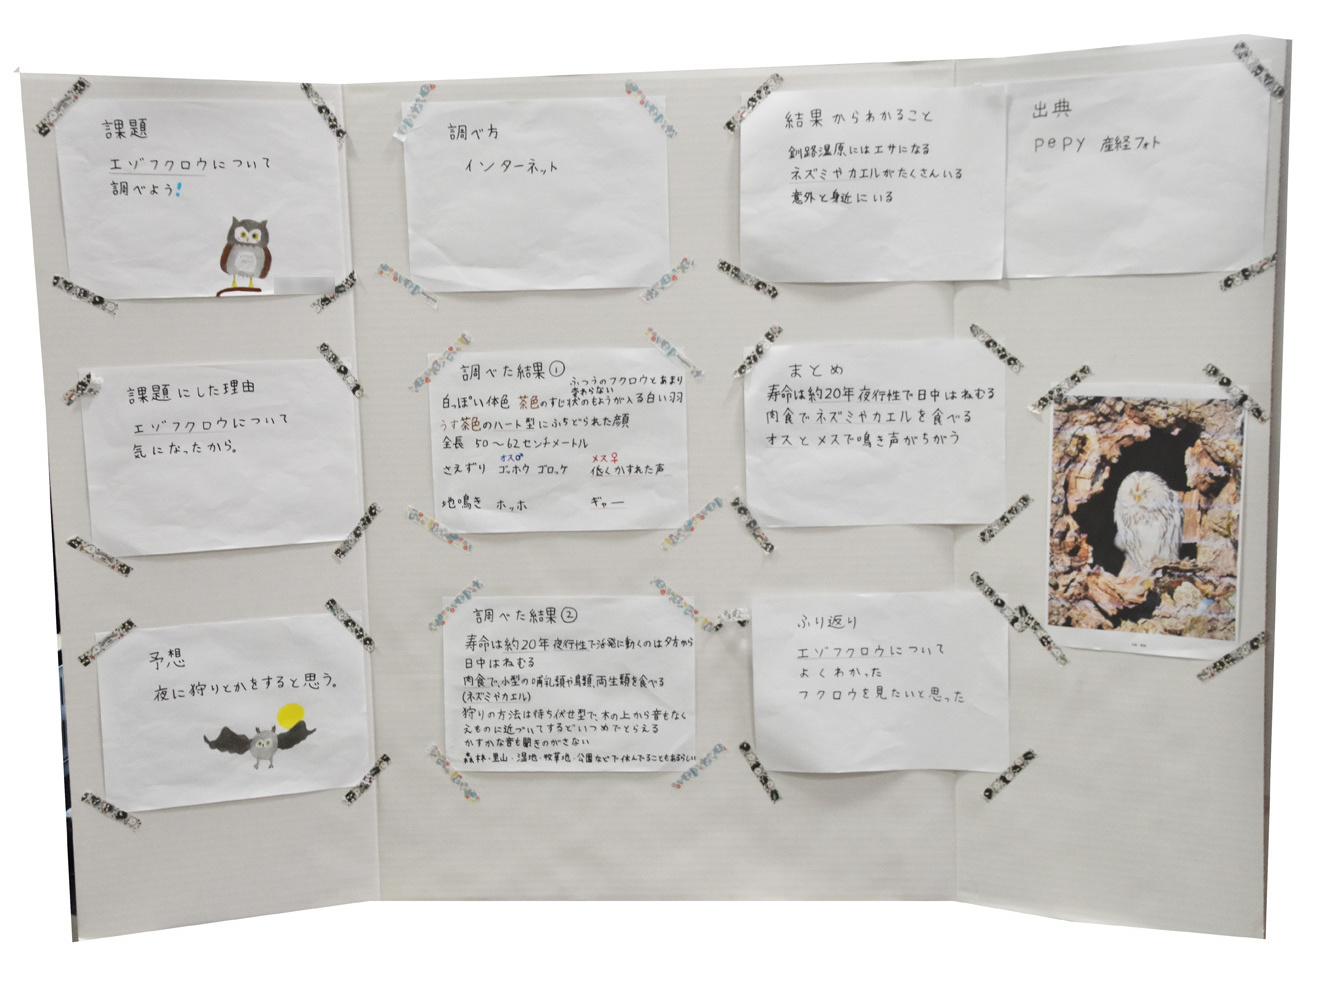 課題
エゾフクロウについて
調べよう!
課題にした理由
エゾフクロウについて
気になったから。
予想
夜に狩りとかをすると思う。
調べ方
インターネット
調べた結果①
ふつうのフクロウとあまり
変わらない
白っぽい体色 茶色のすじ状のもようが入る白い羽
うす茶色のハート型にふちどられた顔
全長 50〜62センチメートル
オス♂ メス♀
さえずり ゴッホウ ゴロッケ 低くかすれた声
地鳴き ホッホ ギャー
調べた結果②
寿命は約20年 夜行性で活発に動くのは夕方から
日中はねむる
肉食で、小型の哺乳類や鳥類、両生類を食べる
(ネズミやカエル)
狩りの方法は待ち伏せ型で、木の上から音もなく
えものに近づいてするどいつめでとらえる
かすかな音も聞きのがさない
森林・里山・湿地・牧草地・公園などで休んでることもあるらしい
結果からわかること
釧路湿原にはエサになる
ネズミやカエルがたくさんいる
意外と身近にいる
まとめ
寿命は約20年 夜行性で日中はねむる
肉食でネズミやカエルを食べる
オスとメスで鳴き声がちがう
ふり返り
エゾフクロウについて
よくわかった
フクロウを見たいと思った
出典
pepy 産経フォト